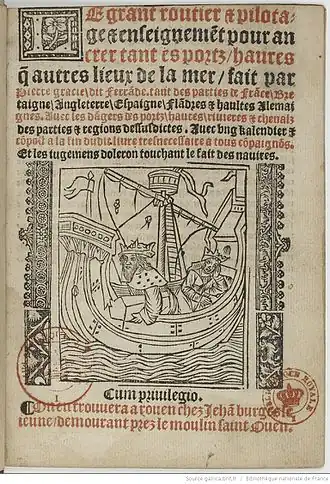 LE grant routier & pilota-
ge & enseignemẽt pour an
crer tant ẽs portz/haures
q̃ autres lieux de la mer/fait par
Pierre garcie/dit Ferrãde.tant des parties de Frãce/Bre
taigne/Angleterre/Espaigne/Flãdres & haultes Alemai
gnes. Auec les dãgers ds portz/haures/riuieres & chenalz
des parties & regions dessusdictes. Auec vng kalendier &
cõpost a la fin dudit liure tresnecessaire a tous cõpaignõs.
Et les iugemens doleron touchant le fait des nauires.
Cum priuilegio.
On en trouuera a rouen chez Jehã burges le
ieune/demourant prez le moulin saint Ouen.
Source gallica.bnf.fr / Bibliothèque nationale de France